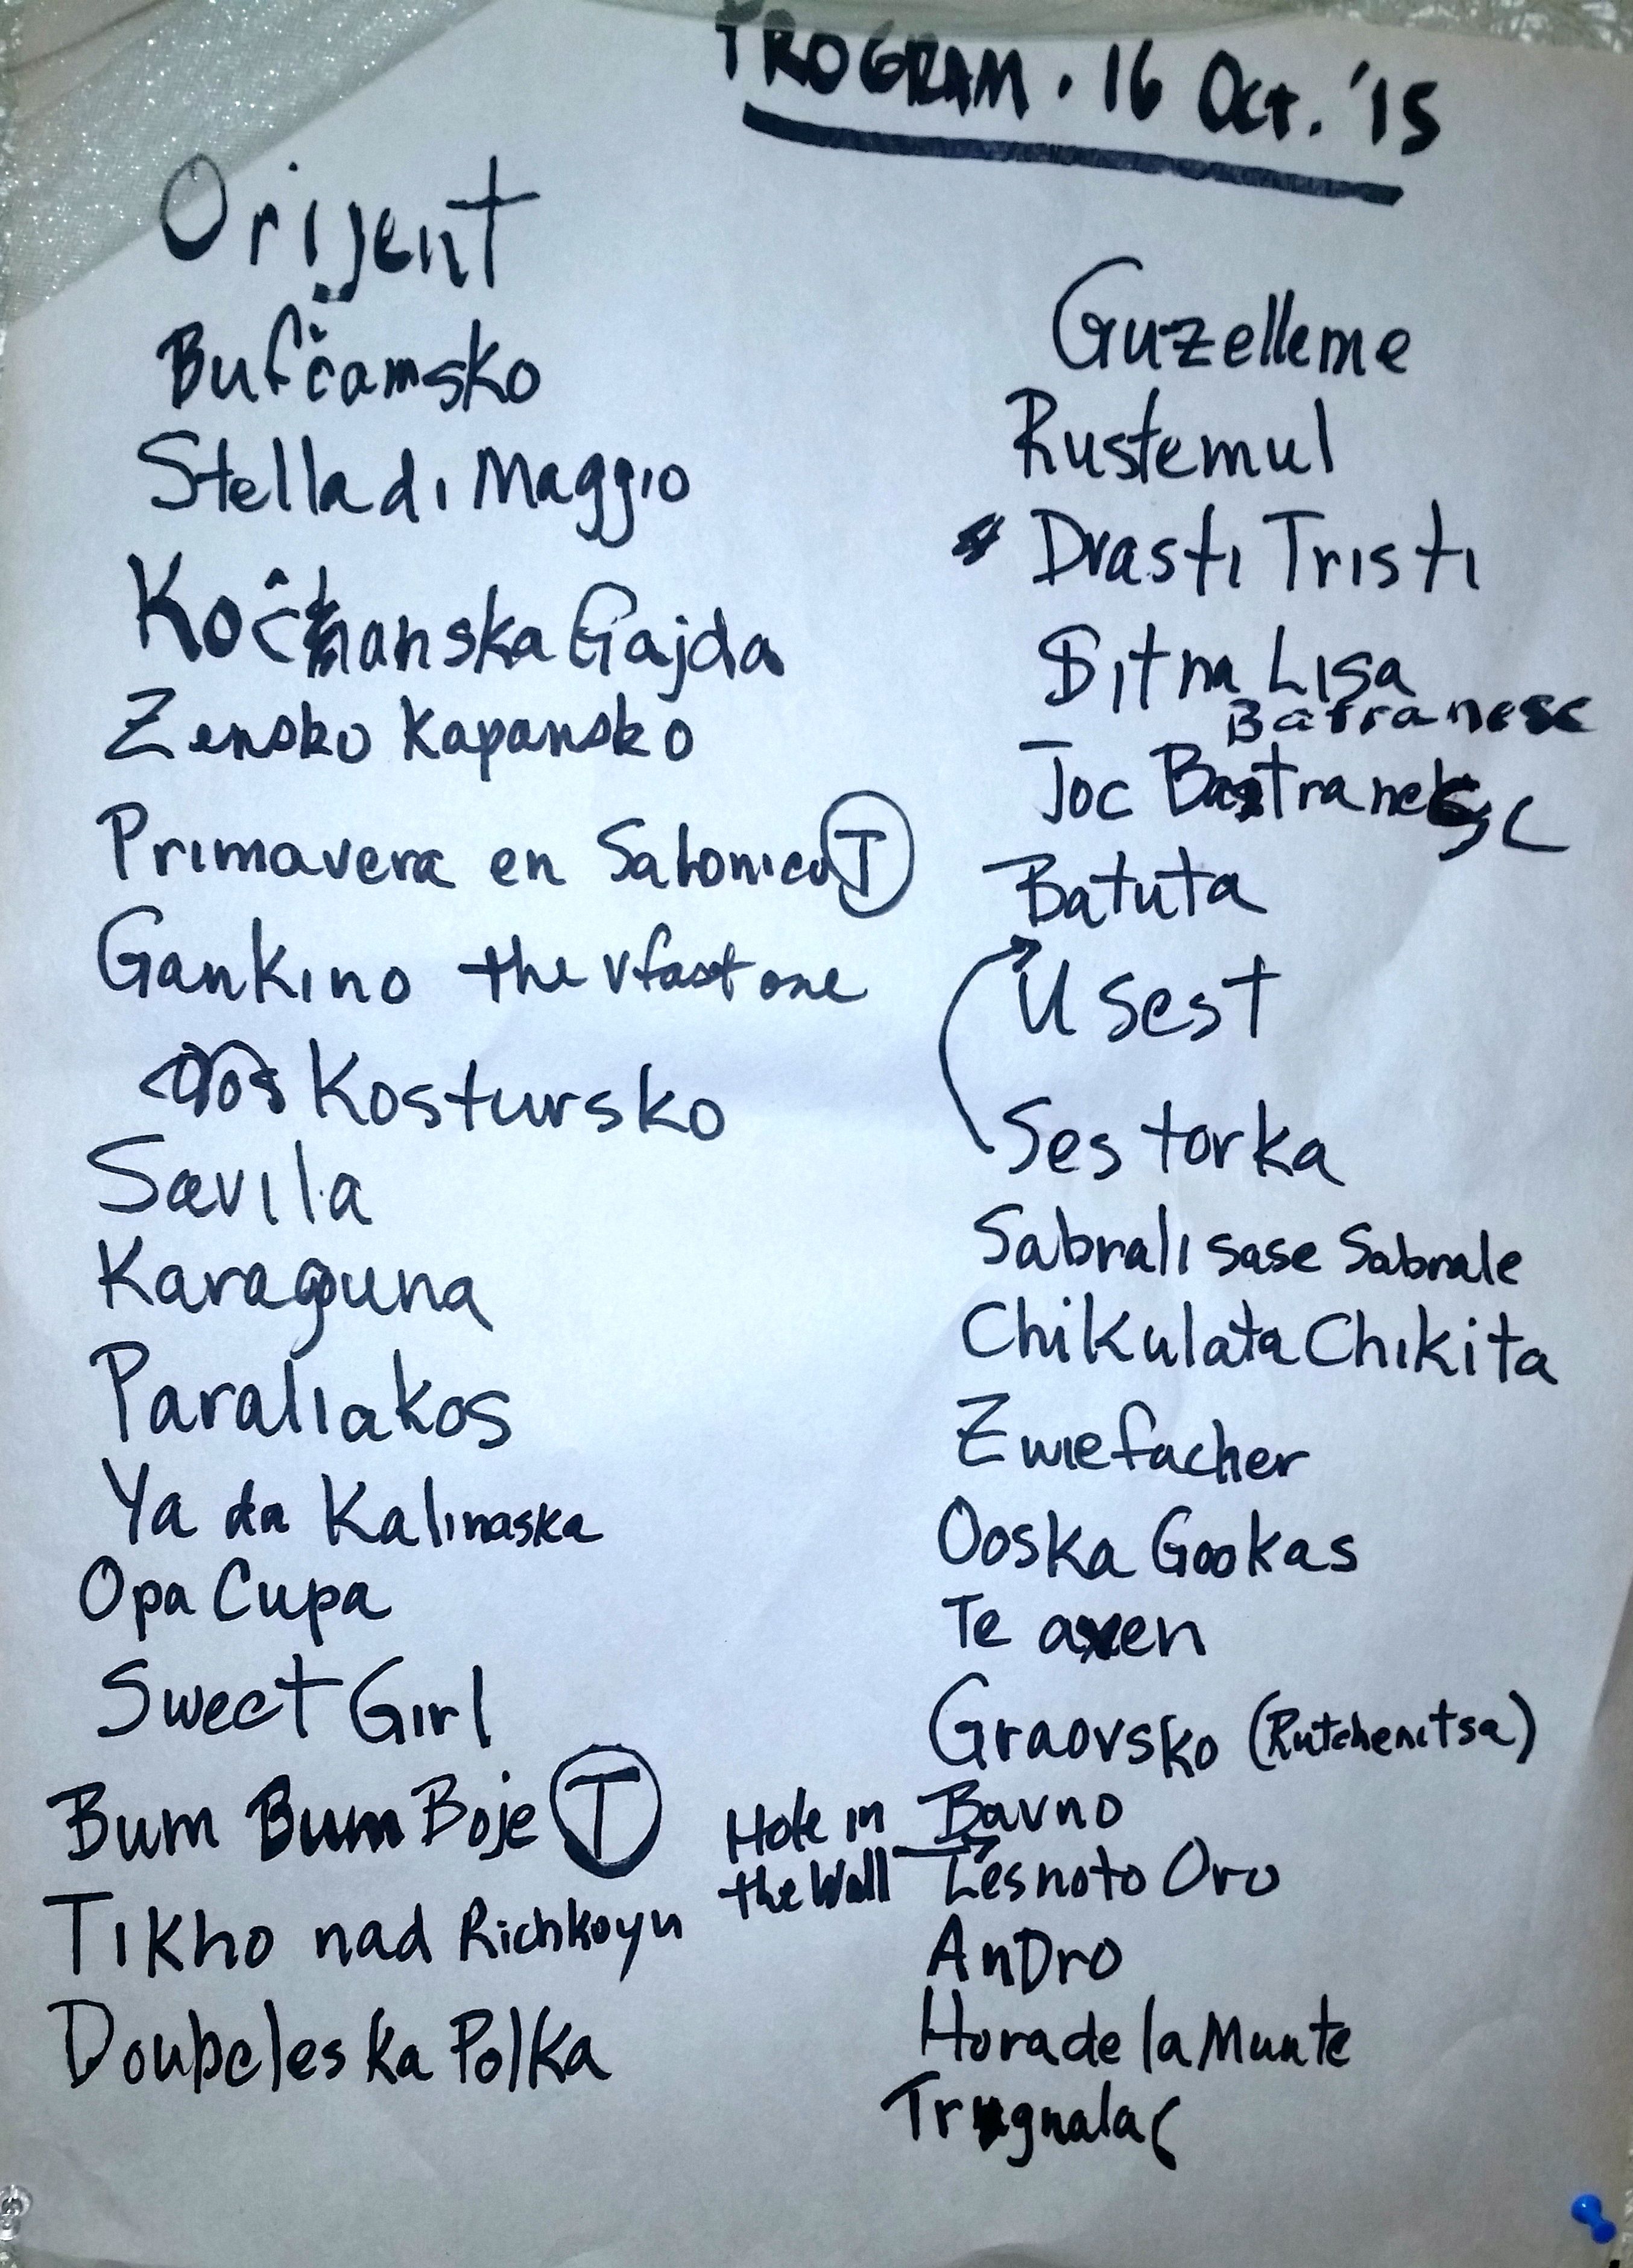 PROGRAM . 16 Oct. '15
Orijent
Bufčamsko
Stella di Maggio
Kočhanska Gajda
Zensko Kapansko
Primavera en Salonico T
Gankino the v fast one
Kostursko
Savila
Karaguna
Paraliakos
Ya da Kalinaska
Opa Cupa
Sweet Girl
Bum Bum Boje T
Tikho nad Richkoyu
Doupcleska Polka
Guzelleme
Rustemul
Drasti Tristi
Sitna Lisa
Batranesc
Joc Bastranesc
Batuta
U Sest
Sestorka
Sabrali sase Sabrale
Chikulata Chikita
Zwiefacher
Ooska Gookas
Te aven
Graovsko (Rutchenitsa)
Bavno
Hole in
the Wall
Lesnoto Oro
AnDro
Hora de la Munte
Trugnala